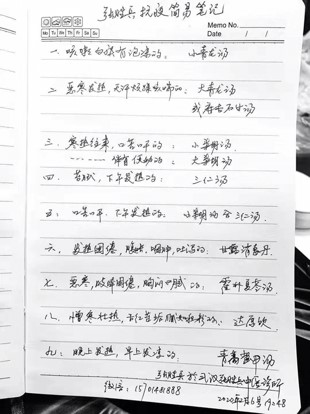 张胜兵抗疫简易笔记
Memo No.
Mo Tu We Th Fr Sa Su
Date / /
一. 咳嗽白痰有泡沫的: 小青龙汤
二. 恶寒发热, 无汗烦躁咳喘的: 大青龙汤
或麻杏石甘汤
三. 寒热往来, 口苦口干的: 小柴胡汤
伴有便秘的: 大柴胡汤
四. 苔腻, 下午发热的: 三仁汤
五. 口苦口干. 下午发热的: 小柴胡汤合三仁汤.
六. 发热困倦, 胸闷, 咽肿, 吐泻的: 甘露消毒丹.
七. 恶寒, 肢体困倦, 胸闷口腻的: 藿朴夏苓汤.
八. 憎寒壮热, 舌红苔垢腻如积粉的: 达原饮
九. 晚上发热, 早上发凉的 青蒿鳖甲汤
张胜兵于武汉
微信: 15701481888 2020年2月6号 19:48